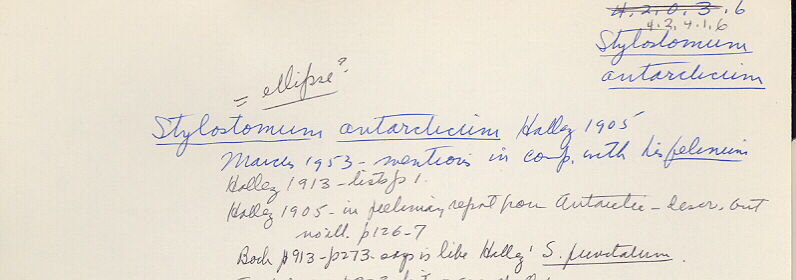 4.2.0.3.6
4.2.4.1.6
Stylostomum
antarcticum
= ellipse?
Stylostomum antarcticum Hallez 1905
Marcus 1953 - mentions in comp. with his felinum
Hallez 1913 - lists p 1.
Hallez 1905 - in preliminary report from Antarctic - descr. but
no ill. p126-7
Bock 1913 - p273 - says is like Hallez' S. punctatum.